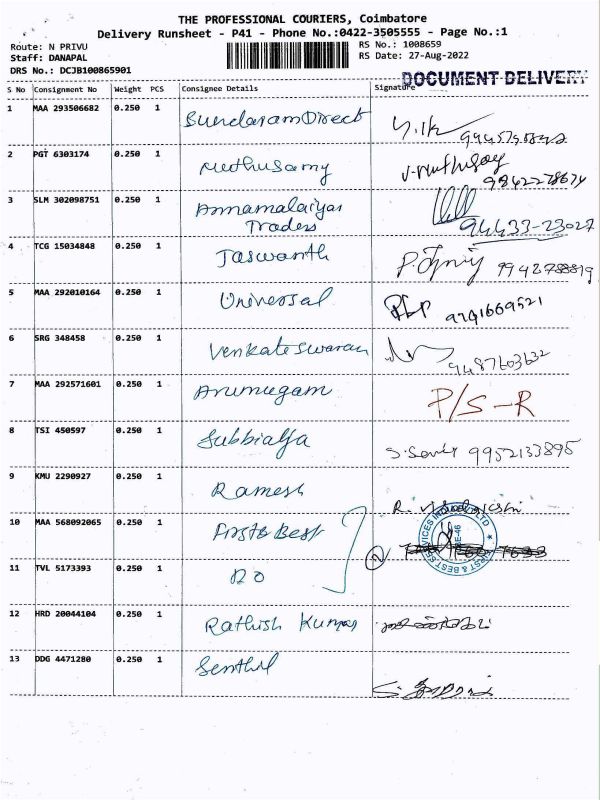 THE PROFESSIONAL COURIERS, Coimbatore
Delivery Runsheet - P41 - Phone No.:0422-3505555 - Page No.:1
Route: N PRIVU
RS No.: 1008659
Staff: DANAPAL
RS Date: 27-Aug-2022
DRS No.: DCJB100865901
DOCUMENT DELIVERY
S No Consignment No Weight PCS Consignee Details Signature
1 MAA 293506682 0.250 1 Sundaram Direct
2 PGT 6303174 0.250 1 Muthusamy
3 SLM 302098751 0.250 1 Annamalaiyar
Traders 94433-23027
4 TCG 15034848 0.250 1 Jaswanth
5 MAA 292010164 0.250 1 Universal 9791669521
6 SRG 348458 0.250 1 Venkateswaran 9487603632
7 MAA 292571601 0.250 1 Arumugam P/S-R
8 TSI 450597 0.250 1 Subbialja 9952133895
9 KMU 2290927 0.250 1 Ramesh
10 MAA 568092065 0.250 1 First & Best
11 TVL 5173393 0.250 1 DO 2
12 HRD 20044104 0.250 1 Rathish Kumar
13 DDG 4471280 0.250 1 Senthil